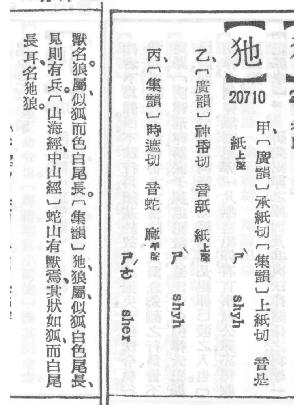 【㹠】
20710
甲、〔廣韻〕承紙切〔集韻〕上紙切 音是
紙上聲 ㄕˋ shyh
乙、〔廣韻〕神㧱切 音舐 紙上聲
ㄕˋ shyh
丙、〔集韻〕時遮切 音蛇 麻平聲
ㄕㄜˊ sher
獸名、狼屬、似狐而色白尾長。〔集韻〕狏、狼屬、似狐、白色長尾、
見則有兵。〔山海經、中山經〕蛇山有獸焉、其狀如狐、而白尾
長耳、名狏狼。